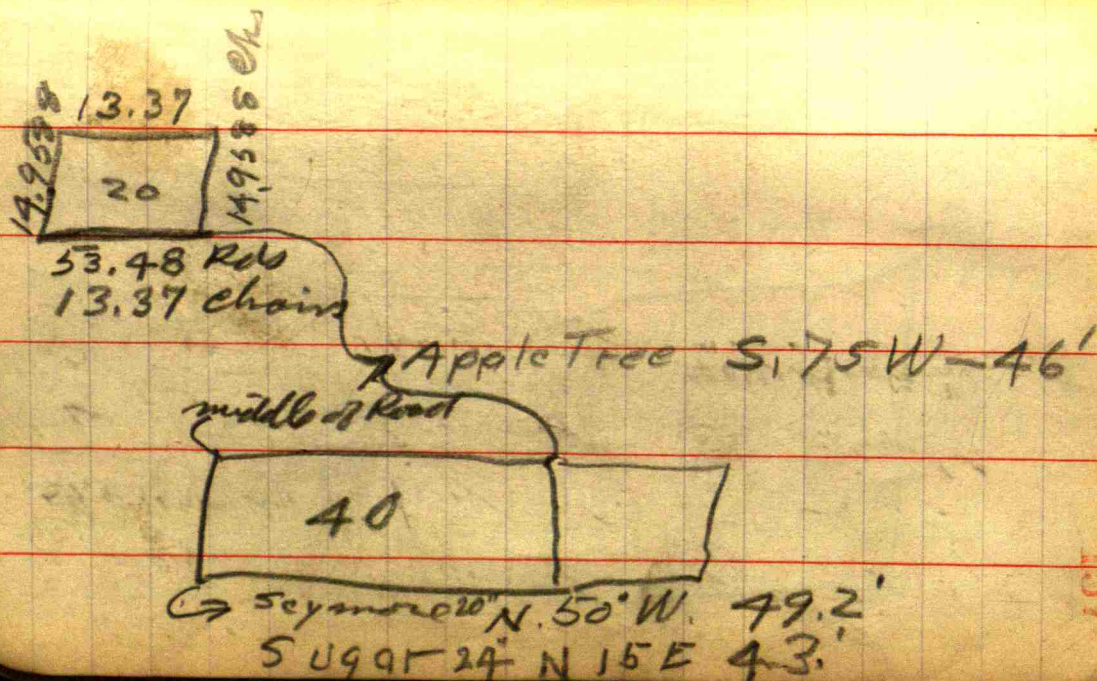 13.37
14.9588
14.9588 Ch
20
53.48 Rds
13.37 chains
Apple Tree S, 75 W - 46'
middle of Road
40
Seymore 20" N. 50° W. 49.2'
Sugar 24" N 15 E 43.'